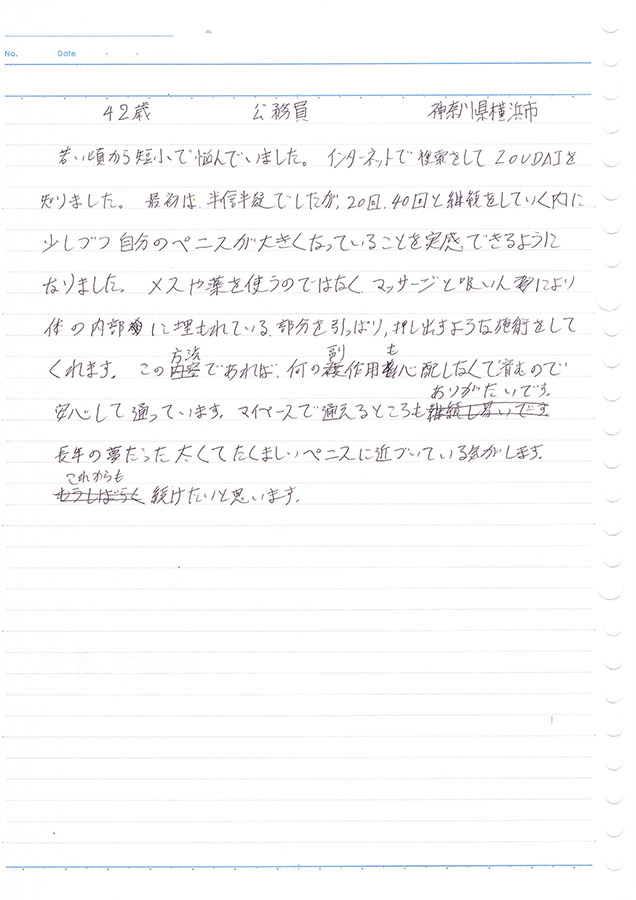 No. Date
42歳 公務員 神奈川県横浜市
若い頃から短小で悩んでいました。インターネットで検索をしてZOUDAIを
知りました。最初は、半信半疑でしたが、20回、40回と継続をしていく内に
少しづつ自分のペニスが大きくなっていることを実感できるように
なりました。メスや薬を使うのではなく、マッサージと吸いん器により
体の内部に埋もれている部分を引っぱり、押し出すような施術をして
くれます。この方法であれば、何の副作用も心配しなくて済むので
安心して通っています。マイペースで通えるところもありがたいです。
長年の夢だった太くてたくましいペニスに近づいている気がします。
これからも続けたいと思います。